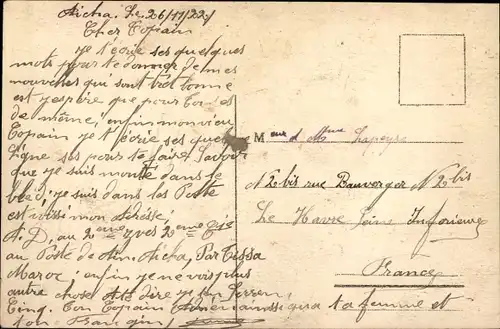 Aicha. Le 26/11/22
Cher Copain
je t'écrie ses quelques
mots pour te donner de mes
nouvelles qui sont trèt bonne
est j'espère que pour toi est
de même, enfin mon vieu
Copain je t'écrie ses quelque
ligne ses pour te faire savoir
que je suis monté dans le
bled je suis dans les Poste
est voisi mon Adrèsse,
A. D, au 2eme 2eme Cie
au Poste de Aïn Aicha, Par Tissa
Maroc, enfin je ne vois plus
autre chose A te dire je
Cinq. Ton Copain qui a ta femme et
ton
Meur et Mme Lapeyre
N 2 bis rue Dauverger N 2 bis
Le Havre Seine Inférieure
France